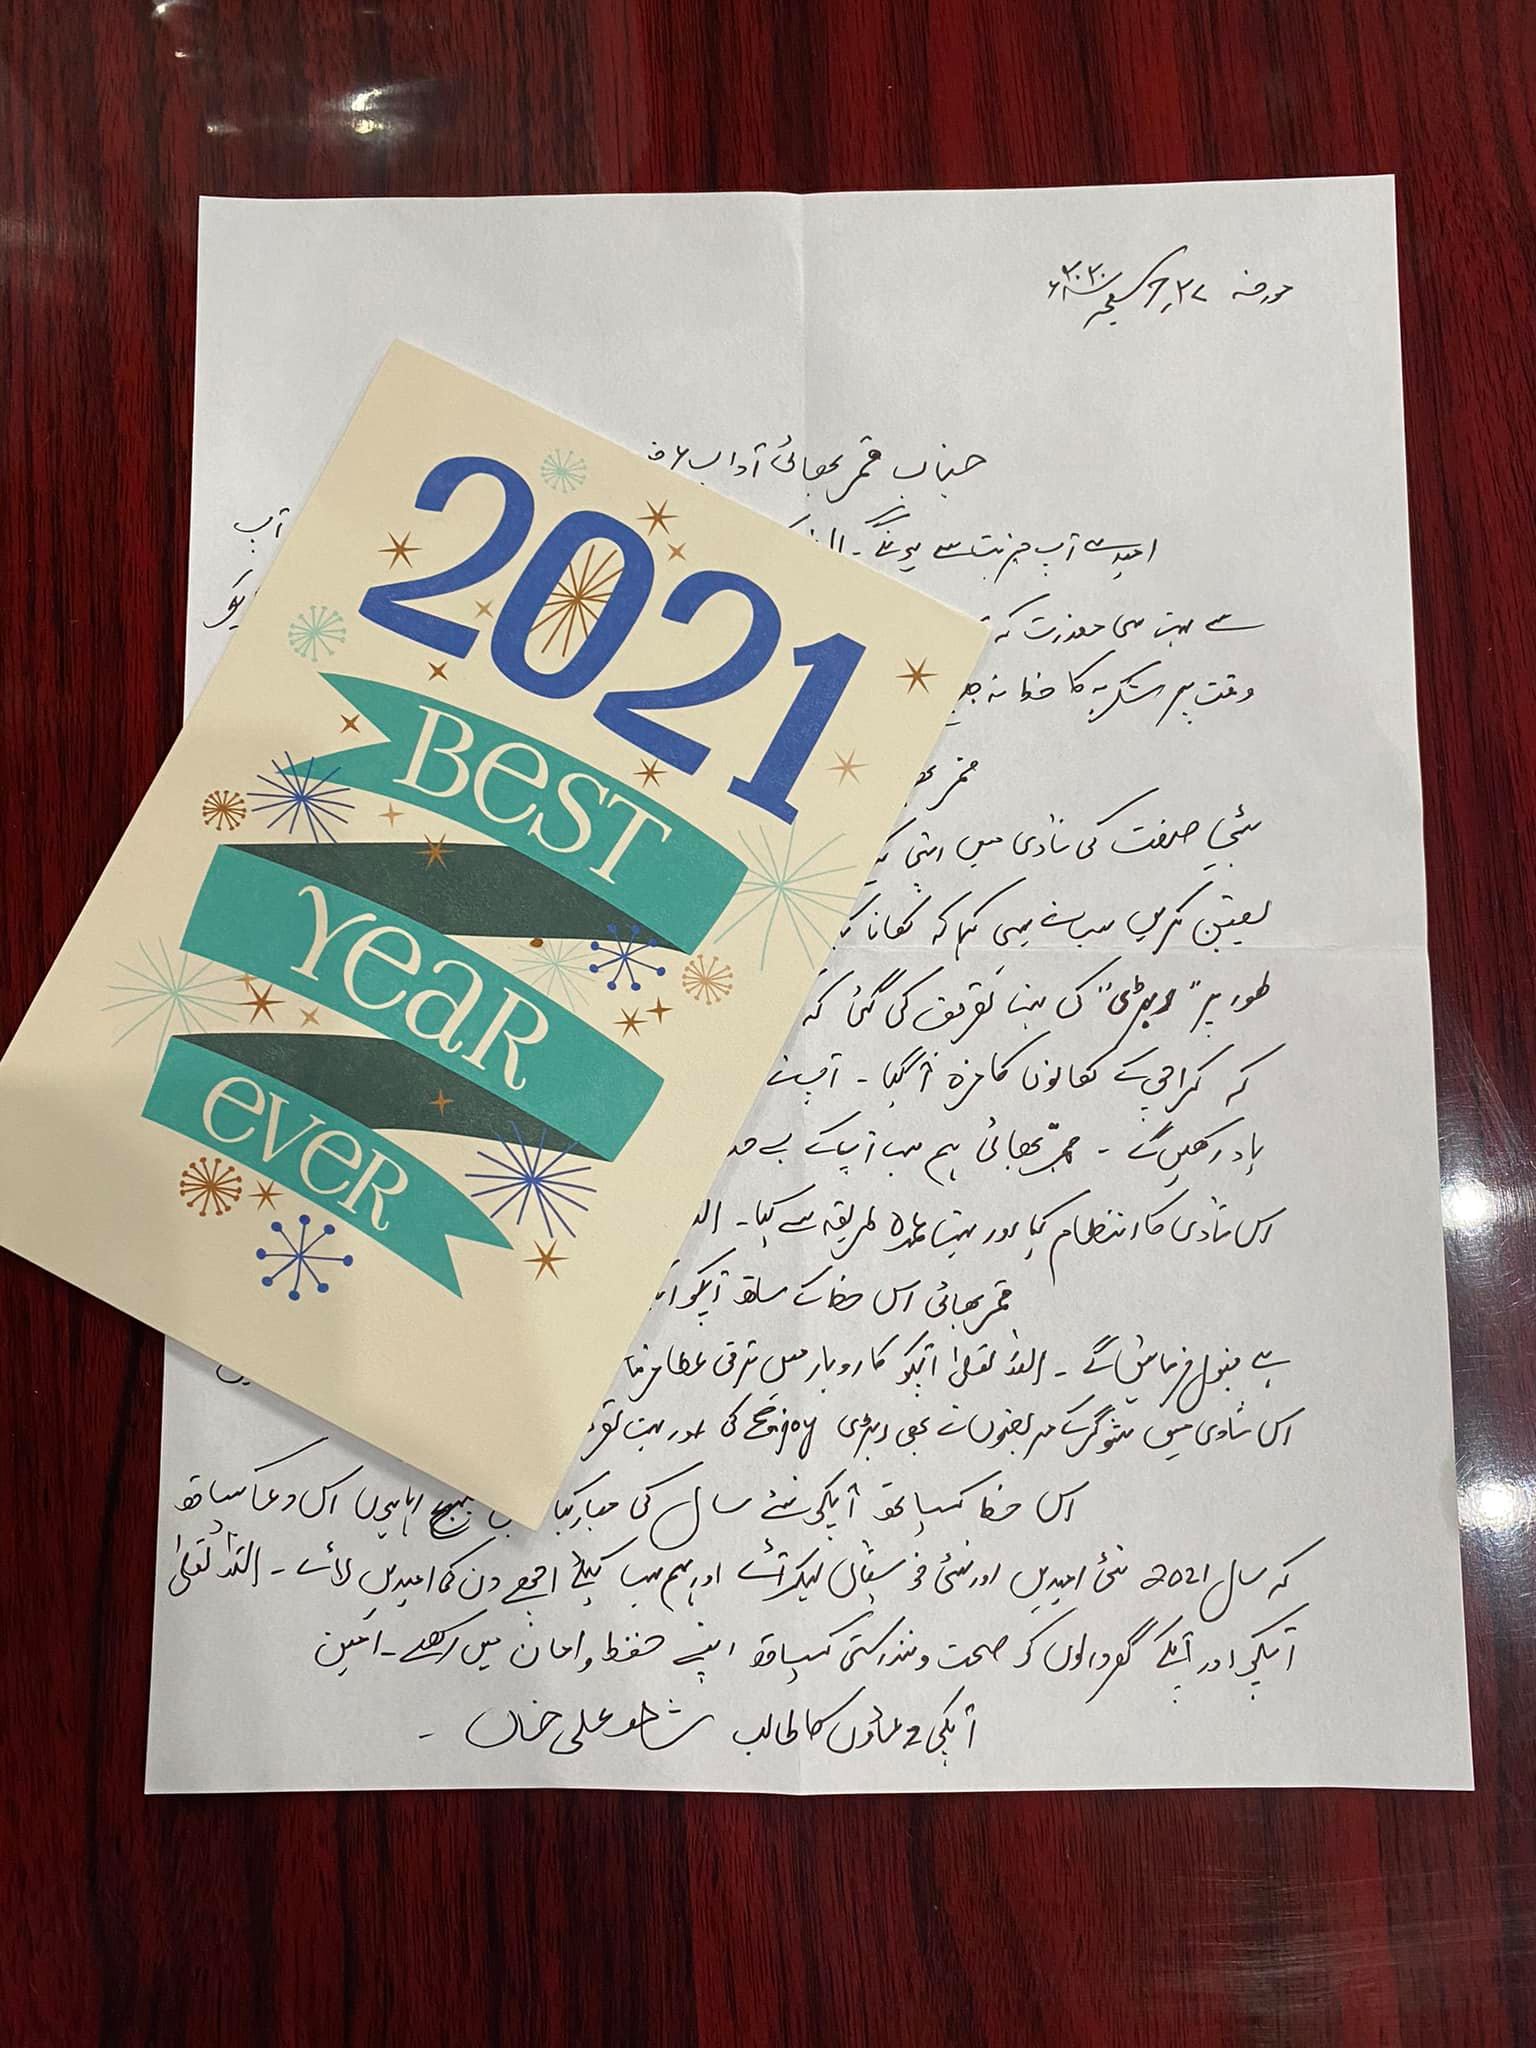 مورخہ ۲۷ دسمبر ۲۰۲۰ء
جناب قمر بھائی آداب
امید ہے آپ خیریت سے ہونگے۔ آپ
سے بہت سی معذرت کہ
وقت پر شکریہ کا خط نہ
قمر
کی شادی میں اپنی
یقین کریں سب نے یہی کہا کہ کھانا
طور پر "ربڑی" کی بہت تعریف کی گئی کہ
کہ کراچی کے کھانوں کا مزہ آ گیا۔ آپ نے
یاد رکھیں گے۔ قمر بھائی ہم سب آپ کے بے حد
اس شادی کا انتظام کیا اور بہت عمدہ طریقہ سے کیا۔
قمر بھائی اس خط کے ساتھ آپکو
ہے قبول فرمائیں گے۔ اللہ تعلیٰ آپکو کاروبار میں ترقی عطا فرما
اس شادی میں شوگر کے مریضوں نے بھی ربڑی Enjoy کی اور بہت
اس خط کیساتھ آپکو نئے سال کی مبارکباد اس دعا کیساتھ
کہ سال 2021 نئی امیدیں اور نئی خوشیاں لیکر آئے اور ہم سب کیلئے اچھے دن کی امیدیں لائے۔ اللہ تعلیٰ
آپکو اور آپکے گھر والوں کو صحت و تندرستی کیساتھ اپنے حفظ و امان میں رکھے۔ آمین
آپکی دعاؤں کا طالب علی خان۔
2021
BEST
YEAR
EVER